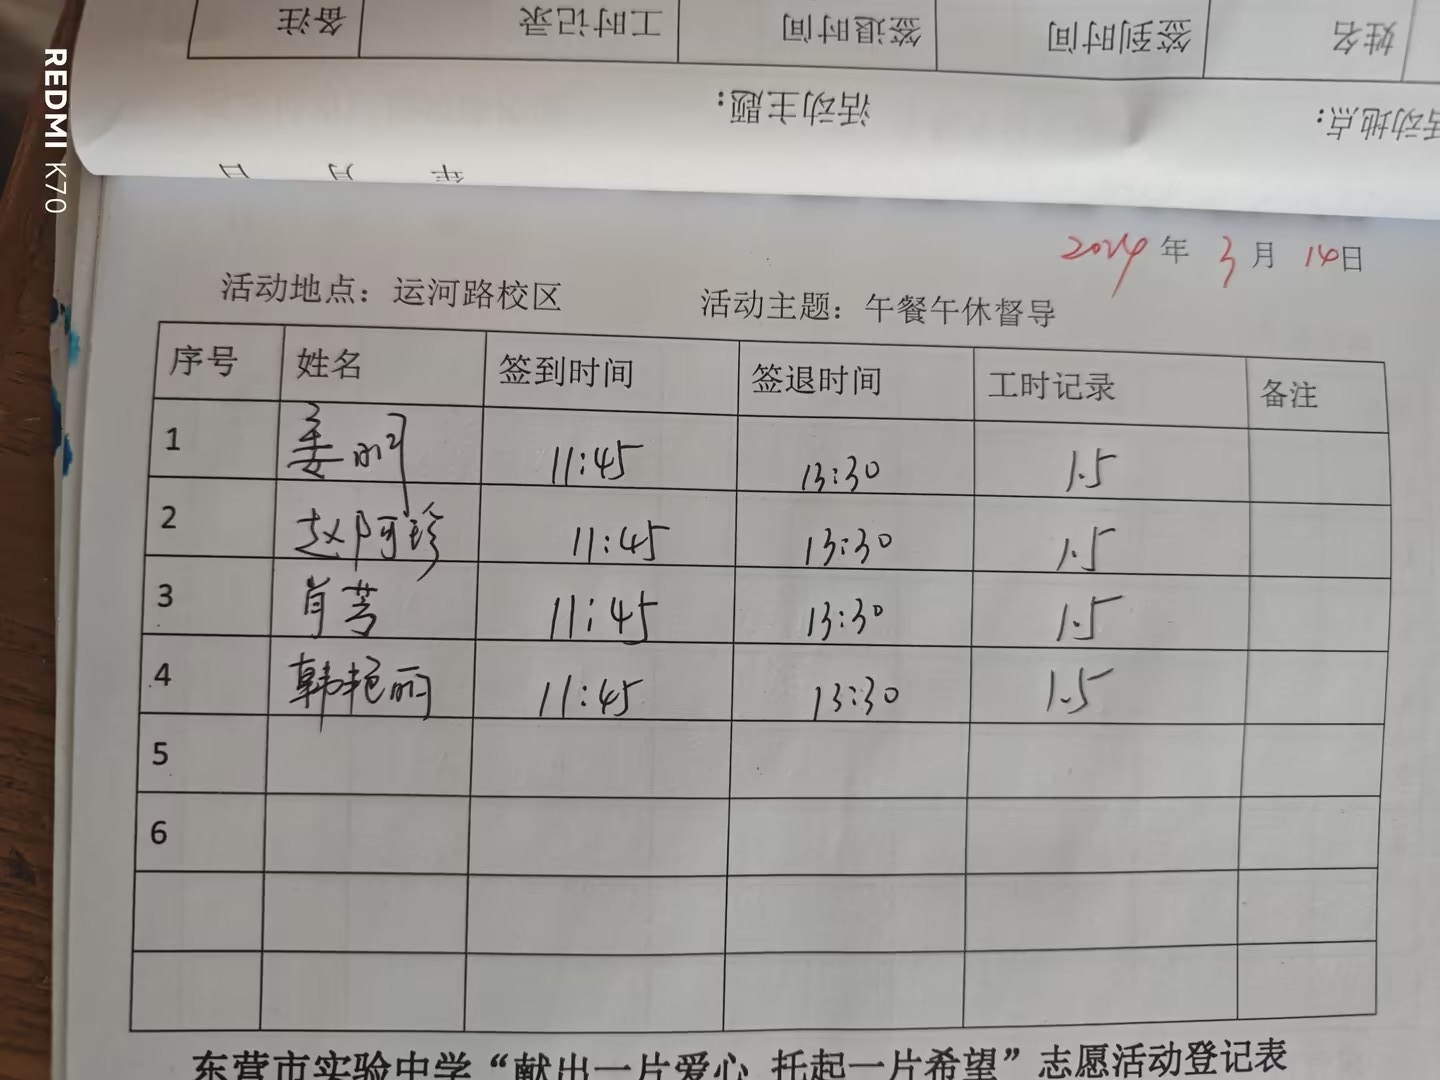 REDMI K70
姓名 签到时间 签退时间 工时记录 备注
活动地点： 活动主题：
年 月 日
2024年 3月 14日
活动地点：运河路校区 活动主题：午餐午休督导
序号 姓名 签到时间 签退时间 工时记录 备注
1 姜丽 11:45 13:30 1.5
2 赵阿珍 11:45 13:30 1.5
3 肖芳 11:45 13:30 1.5
4 韩艳丽 11:45 13:30 1.5
5
6
东营市实验中学“献出一片爱心 托起一片希望”志愿活动登记表